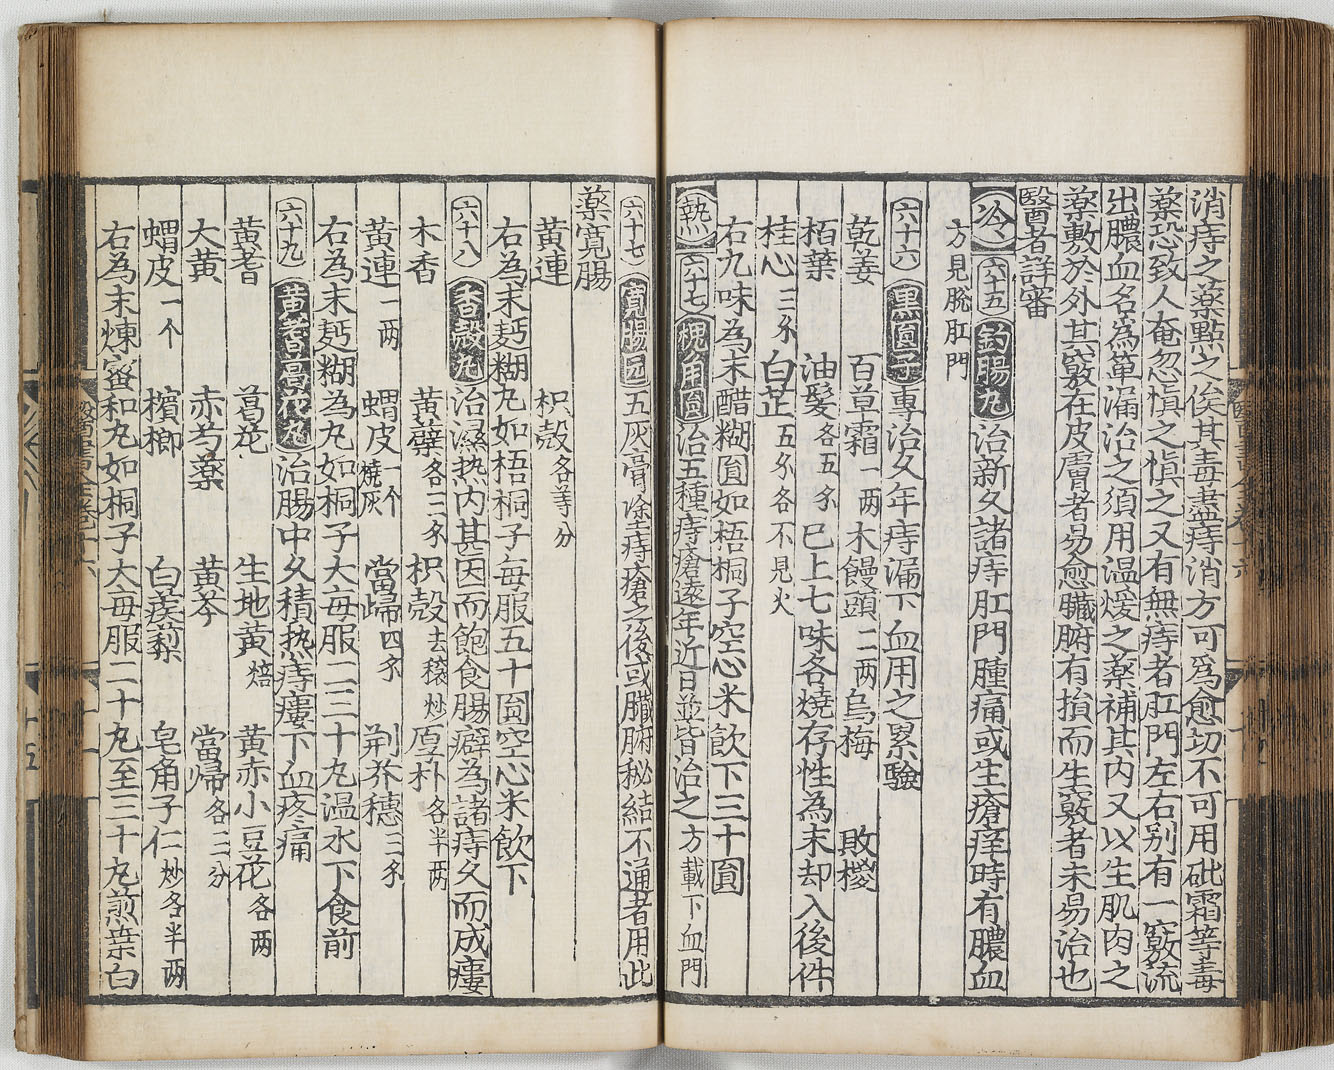 消痔之藥點之俟其毒盡痔消方可為愈切不可用砒霜等毒
藥恐致人奄忽慎之慎之又有無痔者肛門左右别有一竅流
出膿血名為單漏治之須用温煖之藥補其内又以生肌肉之
藥敷於外其竅在皮膚者易愈臟腑有損而生竅者未易治也
醫者詳審
冷 六十五 釣腸丸 治新久諸痔肛門腫痛或生瘡痒時有膿血
方見脫肛門
六十六 黑圓子 專治久年痔漏下血用之累驗
乾姜 百草霜一两 木饅頭二两 烏梅 敗椶
栢葉 油髮各五分 巳上七味各燒存性為末却入後件
桂心三分 白芷五分各不見火
右九味為末醋糊圓如梧桐子空心米飲下三十圓
熱 六十七 槐角圓 治五種痔瘡遠年近日並皆治之方載下血門
六十七 寬腸圓 五灰膏塗痔瘡之後或臟腑秘結不通者用此
藥寬腸
黄連 枳殻各等分
右為末麫糊丸如梧桐子每服五十圓空心米飲下
六十八 香殻丸 治濕热内甚因而飽食腸癖為諸痔久而成瘻
木香 黄蘗各三分 枳殻去穰炒 厚朴各半两
黄連一两 蝟皮一个燒灰 當歸四分 荆芥穗三分
右為末麫糊為丸如桐子大每服二三十丸温水下食前
六十九 黄芪葛花丸 治腸中久積热痔瘻下血疼痛
黄耆 葛花 生地黄焙 黄赤小豆花各两
大黄 赤芍藥 黄芩 當歸各三分
蝟皮一个 檳榔 白蒺藜 皂角子仁炒各半两
右為末煉蜜和丸如桐子大每服二十丸至三十丸煎桒白
十五